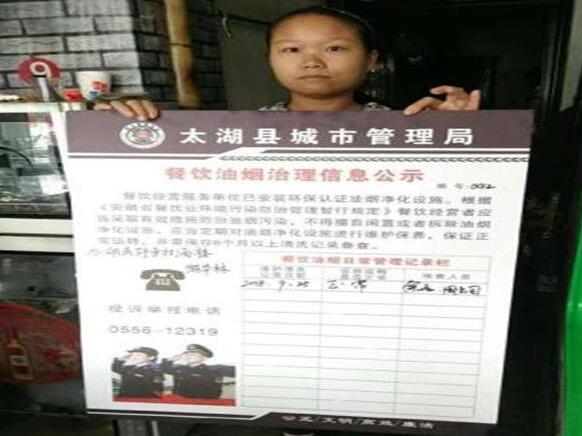 太湖县城市管理局
餐饮油烟治理信息公示
编号:0012
餐饮经营服务单位已安装环保认证油烟净化设施。根据
《安徽省餐饮业环境污染防治管理暂行规定》餐饮经营者应
当采取有效措施防治油烟污染，不得擅自闲置或者拆除油烟
净化设施，应当定期对油烟净化设施进行维护保养，保证正
常运转，并需保存6个月以上清洗记录备查。
餐饮油烟日常管理记录栏
2018.9.25
正常
投诉举报电话
0556-12319
公正/文明/高效/廉洁